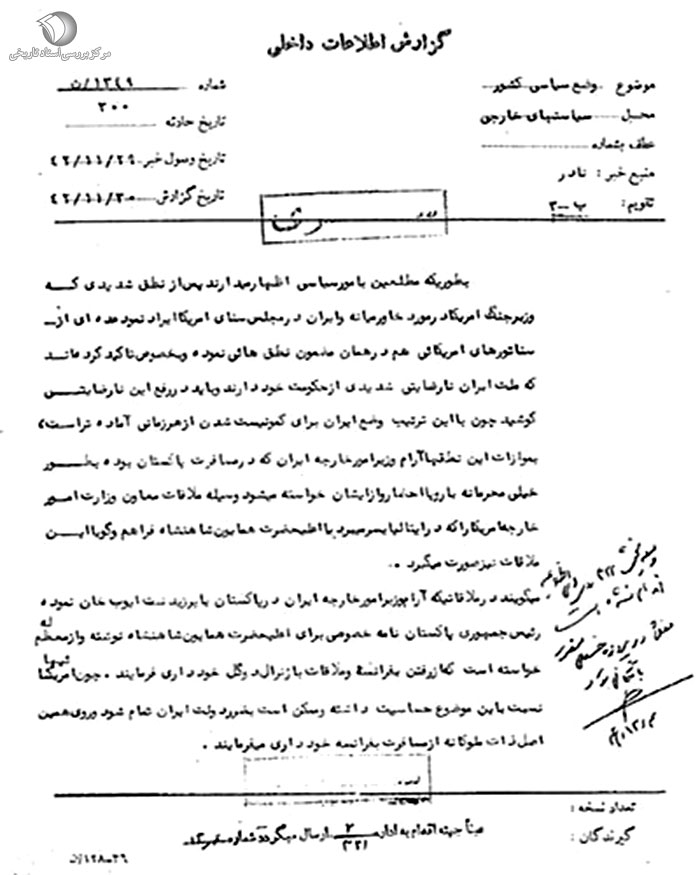 مرکز بررسی اسناد تاریخی
گزارش اطلاعات داخلی
موضوع وضع سیاسی کشور
محل سیاستهای خارجی
عطف بشماره
منبع خبر : نادر
تقویم: ب-۳
شماره ۱۳۴۹/ن
۳۰۰
تاریخ حادثه
تاریخ وصول خبر ۴۲/۱۱/۲۹
تاریخ گزارش ۴۲/۱۱/۳۰
بطوریکه مطلعین بامورسیاسی اظهارمیدارند پس از نطق شدیدی که
وزیرجنگ امریکادرمورد خاورمیانه وایران درمجلس سنای امریکا ایراد نمود عده ای از
سناتورهای امریکائی هم درهمان مضمون نطق هائی نموده وبخصوص تاکید کرده اند
که ملت ایران نارضایتی شدیدی ازحکومت خود دارند وباید دررفع این نارضایتی
کوشید چون با این ترتیب وضع ایران برای کمونیست شدن ازهرزمانی آماده تراست
بموازات این نطقها آرام وزیرامورخارجه ایران که درمسافرت پاکستان بوده بطور
خیلی محرمانه باروپا احضار وازایشان خواسته میشود وسیله ملاقات معاون وزارت امور
خارجه امریکا را که درایتالیا بسرمیبرد با اعلیحضرت همایون شاهنشاه فراهم وگویا این
ملاقات نیزصورت میگیرد .
میگویند درملاقاتیکه آرام وزیرامورخارجه ایران درپاکستان با پرزیدنت ایوب خان نموده
رئیس جمهوری پاکستان نامه خصوصی برای اعلیحضرت همایون شاهنشاه نوشته وازمعظم له
خواسته است که ازرفتن بفرانسه وملاقات با ژنرال دوگل خود داری فرمایند . چون امریکا
نسبت باین موضوع حساسیت داشته وممکن است بضرر دولت ایران تمام شود وروی همین
اصل ذات ملوکانه ازمسافرت بفرانسه خود داری میفرمایند .
تعداد نسخه :
گیرندگان :
عیناً جهته اقدام به اداره ۲/۳۲۱ ارسال میگردد شماره